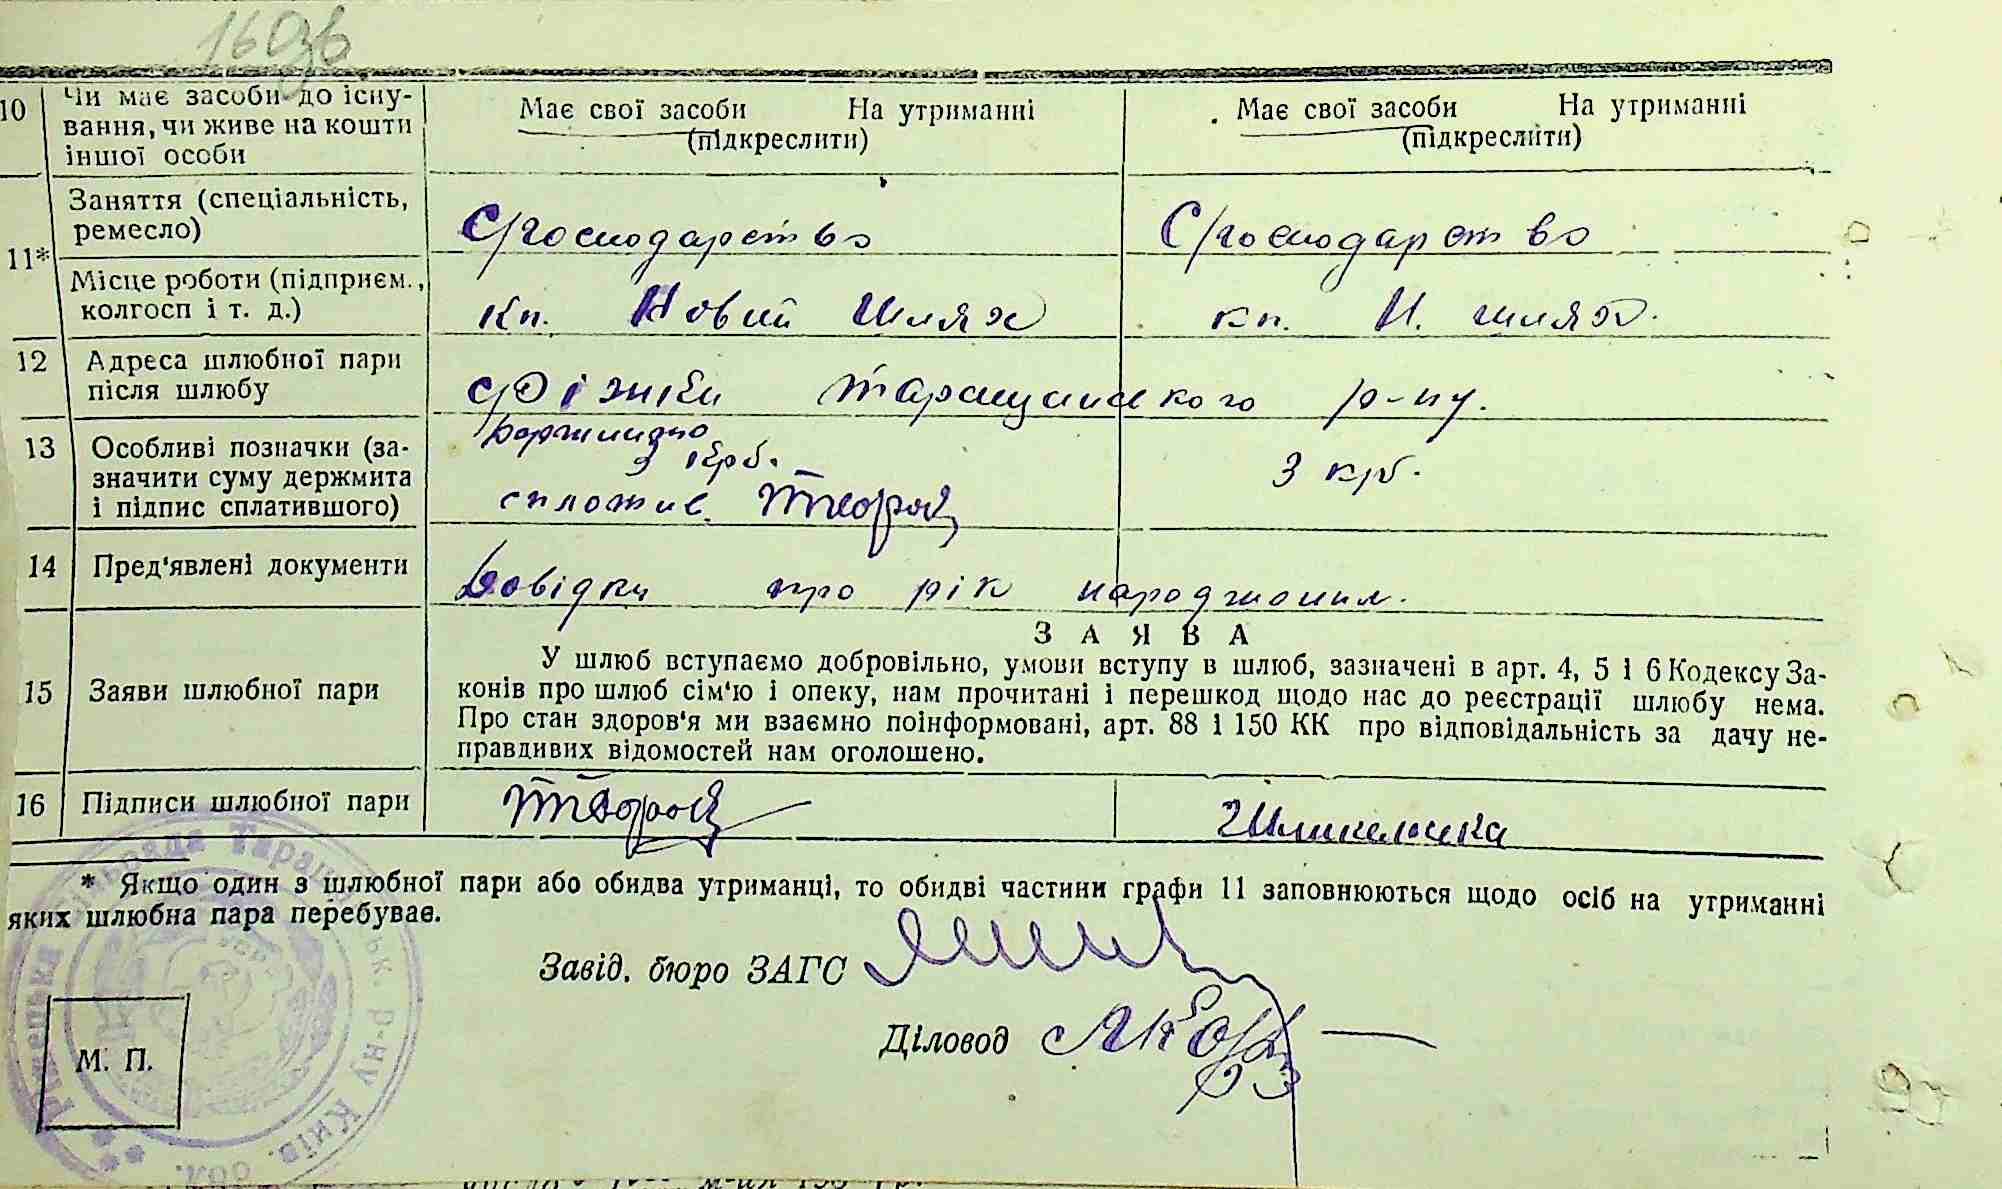 160зв
10 Чи має засоби до існу-
вання, чи живе на кошти
іншої особи
Має свої засоби На утриманні
(підкреслити)
Має свої засоби На утриманні
(підкреслити)
11* Заняття (спеціальність,
ремесло)
С/господарство
С/господарство
Місце роботи (підприєм.,
колгосп і т. д.)
кп. Новий Шлях
кп. Н. шлях.
12 Адреса шлюбної пари
після шлюбу
с. Ріжки Таращанського р-ну.
13 Особливі позначки (за-
значити суму держмита
і підпис сплатившого)
3 крб.
сплатив
3 крб.
14 Пред'явлені документи
Довідки про рік народження.
15 Заяви шлюбної пари
ЗАЯВА
У шлюб вступаємо добровільно, умови вступу в шлюб, зазначені в арт. 4, 5 і 6 Кодексу За-
конів про шлюб сім'ю і опеку, нам прочитані і перешкод щодо нас до реєстрації шлюбу нема.
Про стан здоров'я ми взаємно поінформовані, арт. 88 і 150 КК про відповідальність за дачу не-
правдивих відомостей нам оголошено.
16 Підписи шлюбної пари
* Якщо один з шлюбної пари або обидва утриманці, то обидві частини графи 11 заповнюються щодо осіб на утриманні
яких шлюбна пара перебуває.
Завід. бюро ЗАГС
Діловод
М. П.
р-ну Київ. обл.